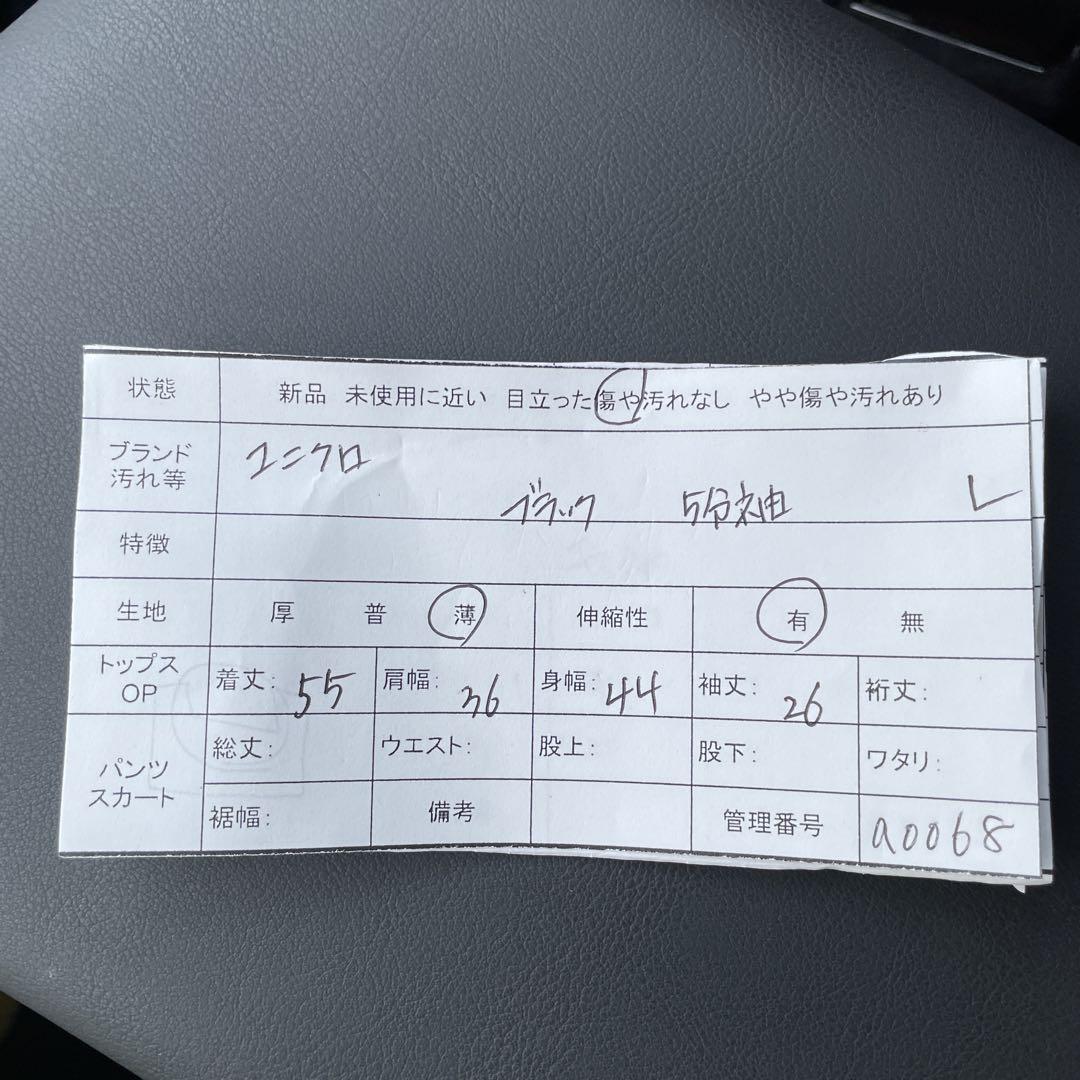 状態 新品 未使用に近い 目立った傷や汚れなし やや傷や汚れあり
ブランド 汚れ等 ユニクロ
ブラック 5分袖 L
特徴
生地 厚 普 薄 伸縮性 有 無
トップス OP 着丈: 55 肩幅: 36 身幅: 44 袖丈: 26 裄丈:
パンツ スカート 総丈: ウエスト: 股上: 股下: ワタリ:
裾幅: 備考 管理番号 a0068